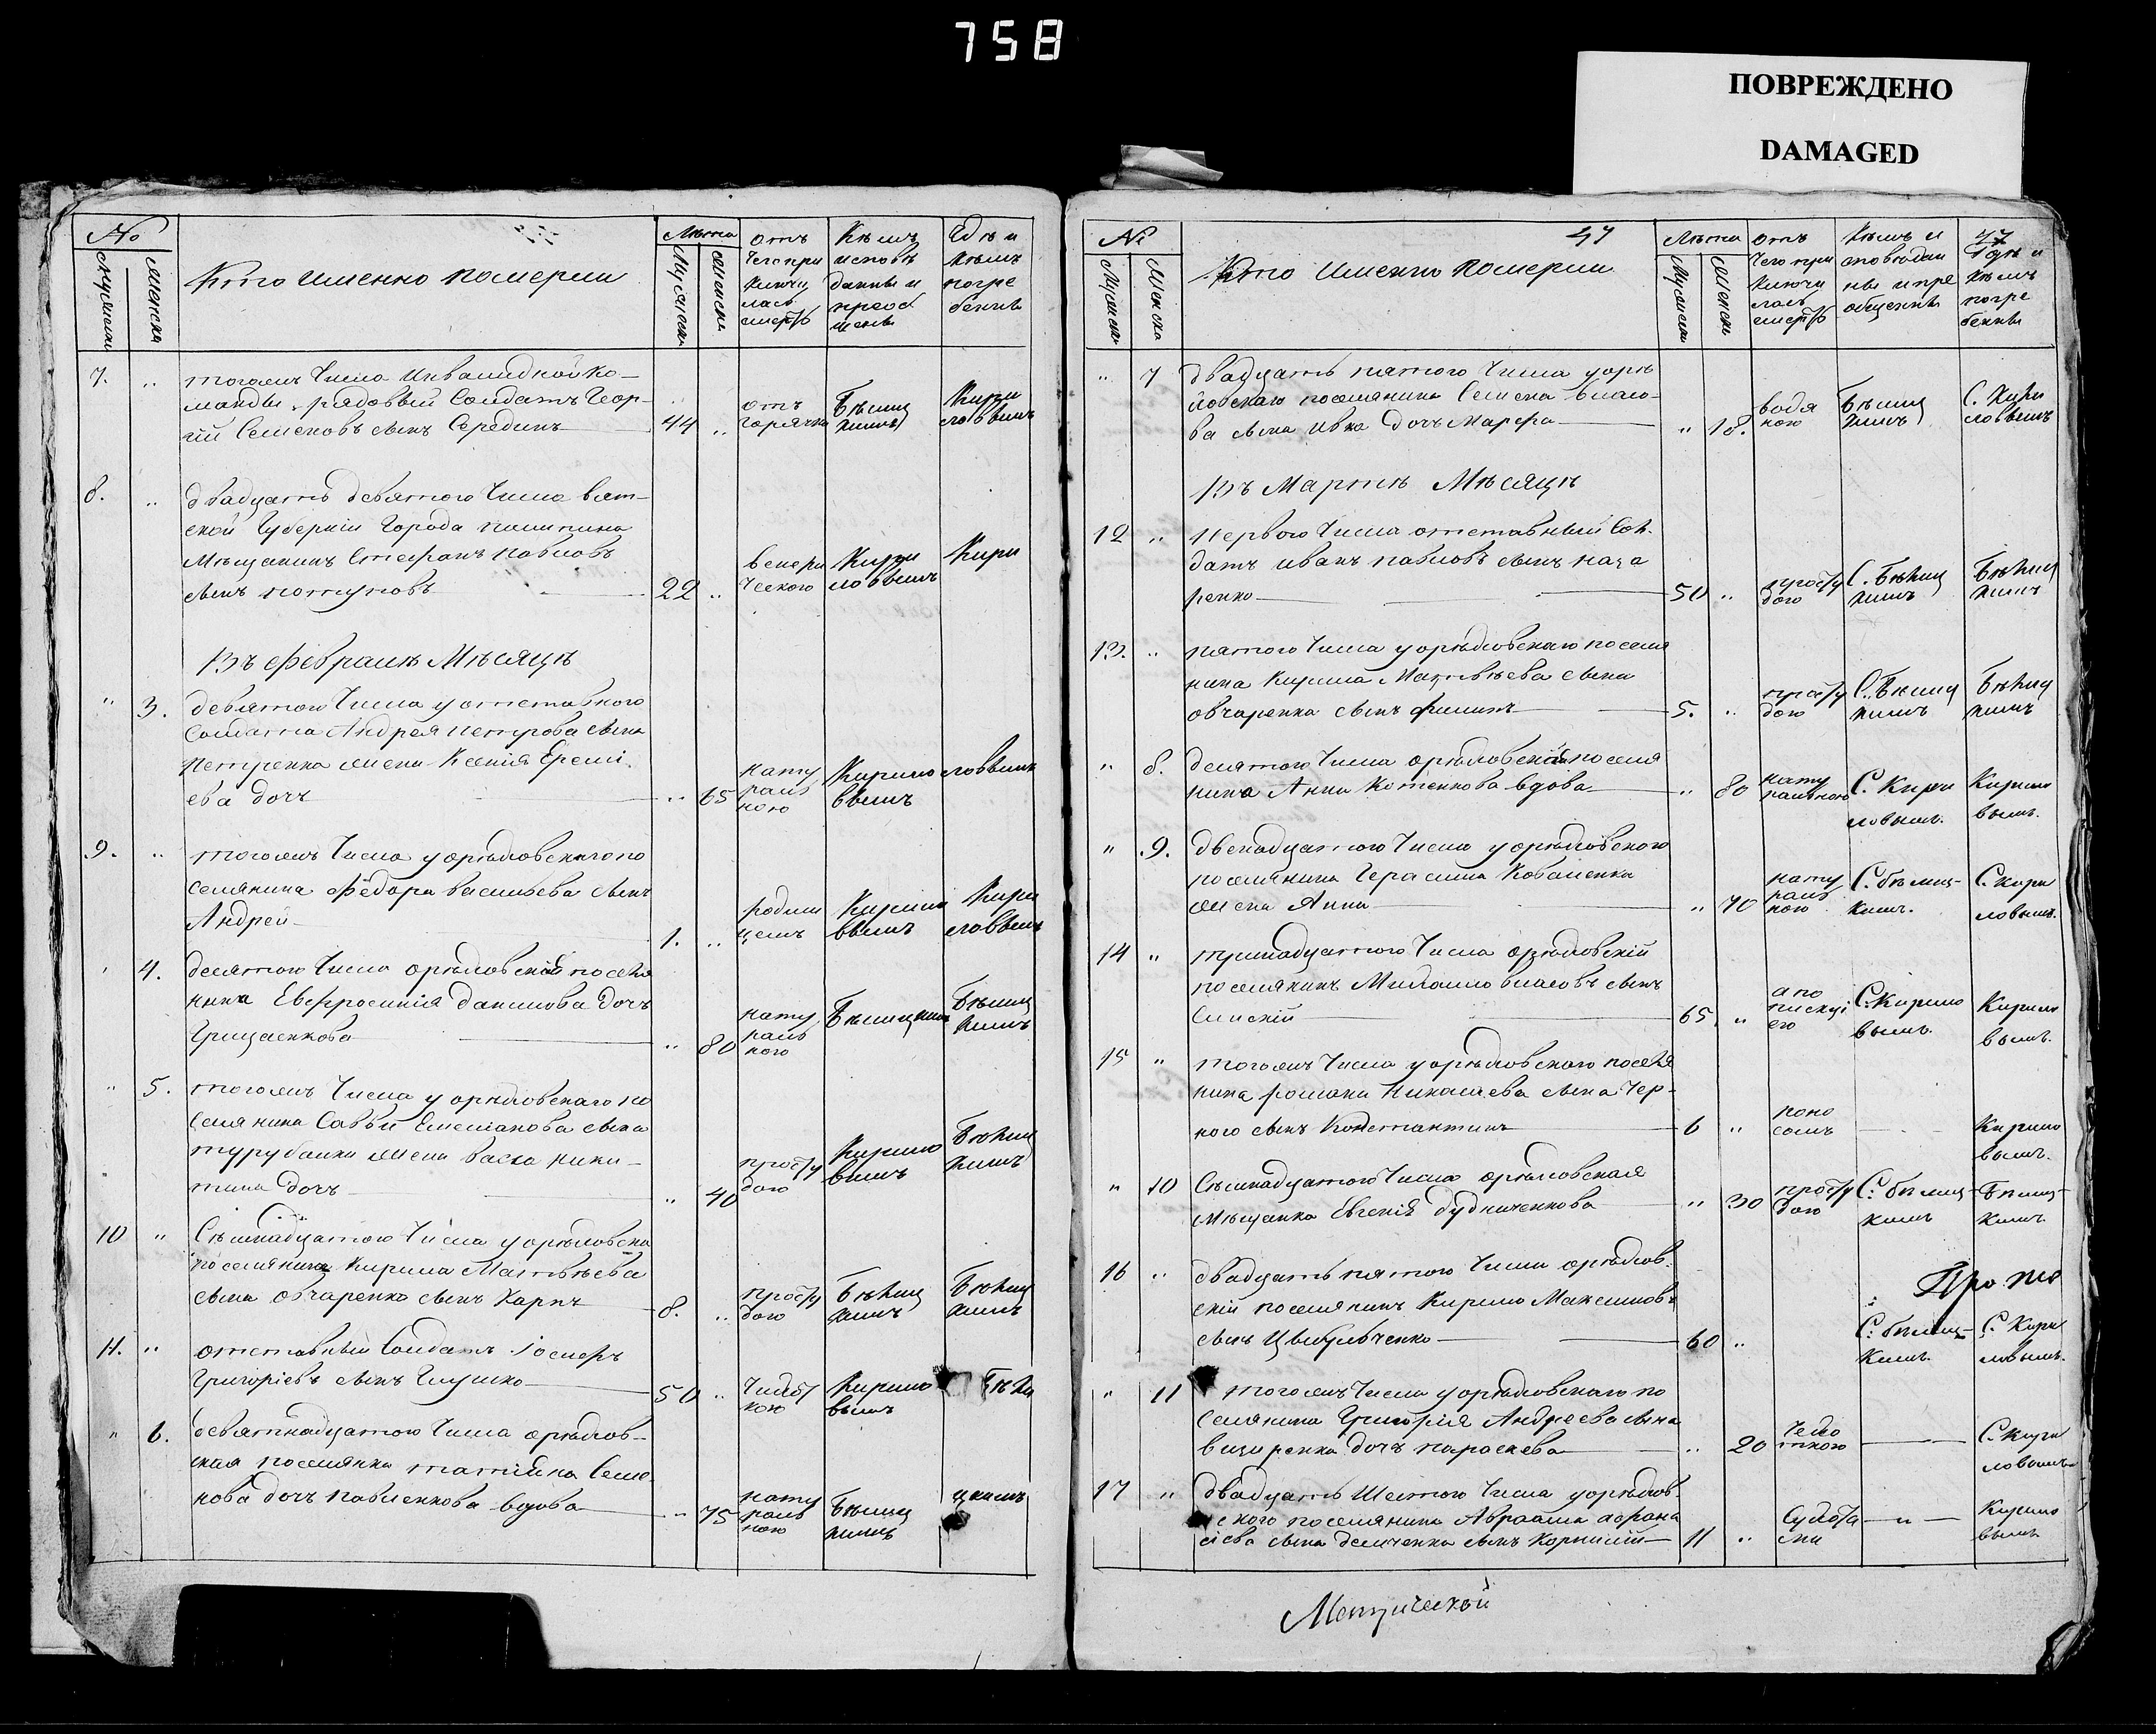 758
ПОВРЕЖДЕНО
DAMAGED
№
Мужеска
Женска
Кто именно померли
Лѣта
Мужеска
Женска
отъ
чего при
ключи
лась
смерть
Кѣмъ
исповѣ
данны и
приоб
щены
Гдѣ и
кѣмъ
погре
бенны
7. „ тогожъ числа инвалидной ко-
манды рядовый Солдатъ Геор-
гій Семеновъ сынъ Середин 44 „
отъ
горячки
Бѣлиц
кимъ
Кири
ловвымъ
8. „ двадцать девятого числа вят-
ской Губерніи Города
Мѣщанинъ Стефанъ павловъ
сынъ потуповъ 22 „
венери
ческого
Кири
ловвымъ
Кири
Въ Февралѣ Мѣсяцѣ
„ 3. девятого числа у отставного
Солдата Андрея петрова сына
Петренка жена Ксенія
ева дочь „ 65
нату
раль
ною
Кирило
ввымъ
ловвымъ
9. „ тогожъ числа у орѣловского по
селянина Федора васильева сынъ
Андрей 1. „
родим
цемъ
Кирило
ввымъ
Кири
ловвымъ
4. десятого числа орѣловская поселя
нка Евфросинія данилова дочь
Грицаенкова „ 80
нату
раль
ного
Бѣлицкимъ
Бѣлиц
кимъ
„ 5. тогожъ числа у орѣловскаго по
селянина Саввы Емелианова сына
турубалки жена васса ники-
тина дочь „ 40
просту
дою
Кирило
вымъ
Бѣлиц
кимъ
10 „ Семнадцатого числа у орѣловска
поселянина Кирила Матвѣева
сына овчаренко сынъ Карпъ 8. „
просту
дою
Бѣлиц
кимъ
Бѣлиц
кимъ
11. „ отставный Солдатъ Іосифъ
Григоріевъ сынъ Глушко 50 „
чахот
кою
Кирило
вымъ
Бѣли
„ 6. девятнадцатого числа орѣлов-
ская поселянка татіяна Семе
нова дочь павленкова вдова „ 75
нату
раль
ною
Бѣлиц
кимъ
цкимъ
№
Мужеска
Женска
Кто именно померли
47
Лѣта
Мужеска
Женска
отъ
чего при
ключи
лась
смерть
Кѣмъ и
споведан
ны и прі
общенны
47
Гдѣ и
кѣмъ
погре
бенны
„ 7 двадцать пятого числа у орѣ
ловскаго поселянина Семена власо-
ва сына ивка дочь Марфа „ 18.
водя
ною
Бѣлиц
кимъ
С. Кири
ловвымъ
Въ Мартѣ Мѣсяцѣ
12 „ первого числа отставный Сол
датъ иванъ павловъ сынъ наза
ренко 50 „
просту
дою
С. Бѣлиц
кимъ
Бѣлиц
кимъ
13. „ пятого числа у орѣловскаго поселя
нина Кирила Матвѣева сына
овчаренка сынъ филипъ 5. „
просту
дою
С. Бѣлиц
кимъ
Бѣлиц
кимъ
„ 8. десятого числа орѣловская поселя
нка Анна Котенкова вдова „ 80
нату
ральною
С. Кири
ловымъ.
Кирило
вымъ.
„ 9. двенадцатого числа у орѣловского
поселянина Герасима Коваленка
жена Анна „ 70
нату
раль
ною
С. бѣлиц-
кимъ.
С. Кири
ловымъ.
14 „ тринадцатого числа орѣловскій
поселянинъ Михаило власовъ сынъ
65 „
апо
плексі
ею
С. Кирило
вымъ.
Кирило
вымъ.
15 „ тогожъ числа у орѣловского поселя
нина романа Николаева сына Чер-
ного сынъ Константинъ 6 „
поно
сомъ
Кирило
вымъ.
„ 10 Семнадцатого числа орѣловская
мѣщанка Евгенія Дудниченкова „ 30
просту
дою
С. бѣлиц-
кимъ
Бѣлиц-
кимъ.
16 „ двадцать пятого числа орѣлов-
скій поселянинъ Кирило Максимовъ
сынъ 60 „
С: бѣлиц-
кимъ.
С. Кири
ловымъ.
„ 11 тогожъ числа у орѣловскаго по
селянина Григорія Андреева сына
дочь параскева „ 20
чехо
ткою
С. Кири
ловымъ
17 „ двадцать Шестого числа у орѣлов-
ского поселянина Авраама афана
сіева сына демченка сынъ Корнилій 11 „
Сухота
ми
— „ —
Кирило
вымъ
Метрической